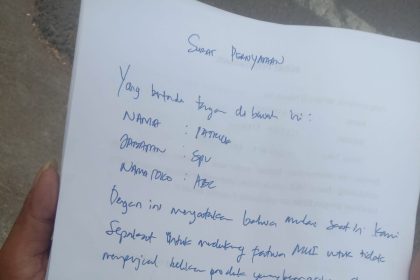 SURAT PERNYATAAN
Yang bertanda tangan di bawah ini :
NAMA : PATRICK
JABATAN : SPV
NAMA TOKO : ABC
Dengan ini menyatakan bahwa mulai saat ini kami
Sepakat untuk mendukung fatwa MUI untuk tidak
memperjual belikan produk yang